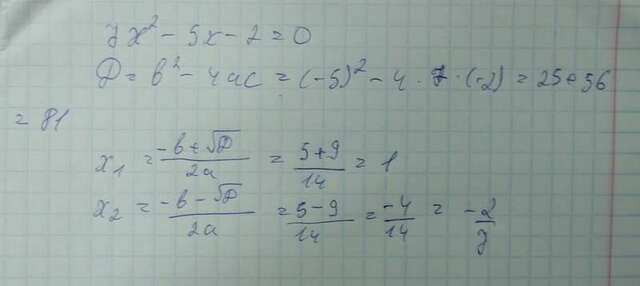 7x² - 5x - 2 = 0
D = b² - 4ac = (-5)² - 4 · 7 · (-2) = 25 + 56
= 81
x₁ = (-b + √D)/(2a) = (5+9)/14 = 1
x₂ = (-b - √D)/(2a) = (5-9)/14 = -4/14 = -2/7